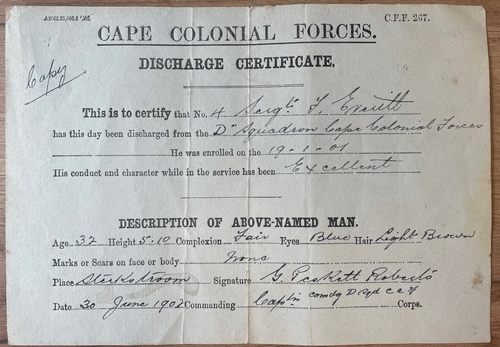 C.F.F. 267.
CAPE COLONIAL FORCES.
DISCHARGE CERTIFICATE.
Copy
This is to certify that No. 4 Sergt. F. Everitt
has this day been discharged from the "D" Squadron Cape Colonial Forces
He was enrolled on the 19-1-01
His conduct and character while in the service has been Excellent
DESCRIPTION OF ABOVE-NAMED MAN.
Age 32 Height 5-10 Complexion Fair Eyes Blue Hair Light Brown
Marks or Scars on face or body None
Place Sterkstroom Signature G. Peskett Roberts
Date 30 June 1902 Commanding Captn comdg D Sqd C C F Corps.